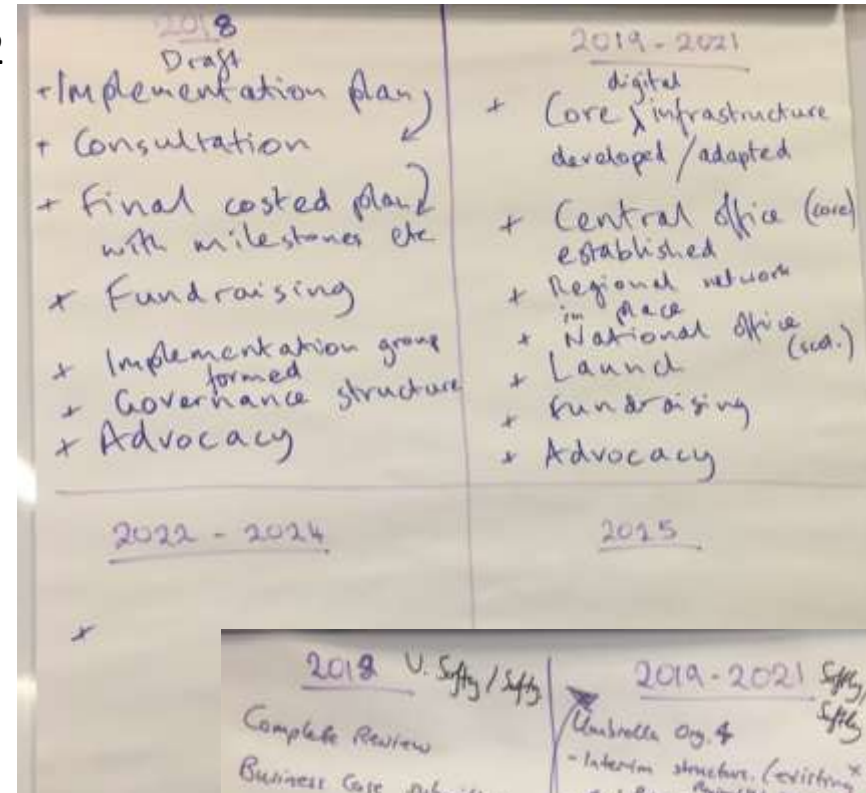 2018
Draft
+ Implementation plan
+ Consultation
+ Final costed plan
with milestones etc
+ Fundraising
+ Implementation group
formed
+ Governance structure
+ Advocacy
2019 - 2021
digital
+ Core infrastructure
developed / adapted
+ Central office (core)
established
+ Regional network
in place
+ National office
(scd.)
+ Launch
+ Fundraising
+ Advocacy
2022 - 2024
+
2025
2018 V. Softly / Softly
Complete Review
Business Case
2019 - 2021 Softly,
Softly
Umbrella Org.
- Interim structure. (existing